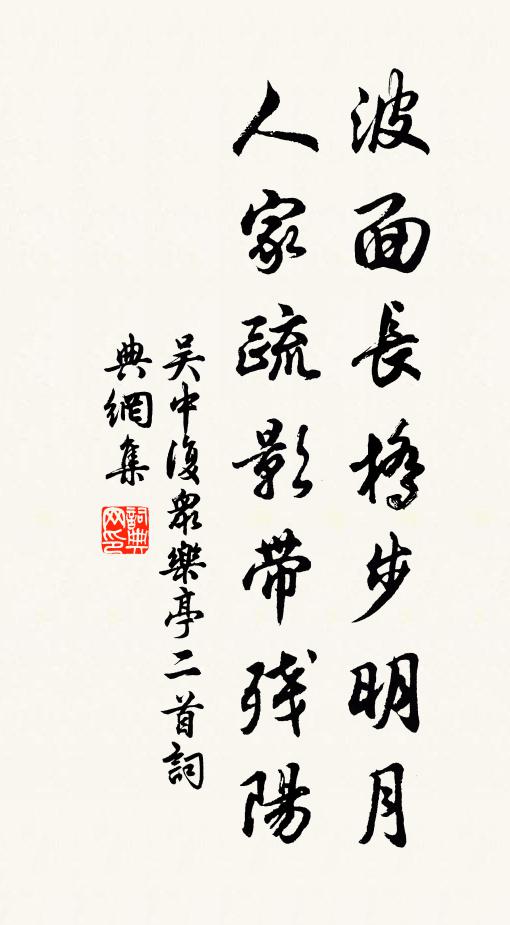 波面長橋步明月
人家疏影帶残陽
吴中復眾樂亭二首詞
典網集
詞典網印